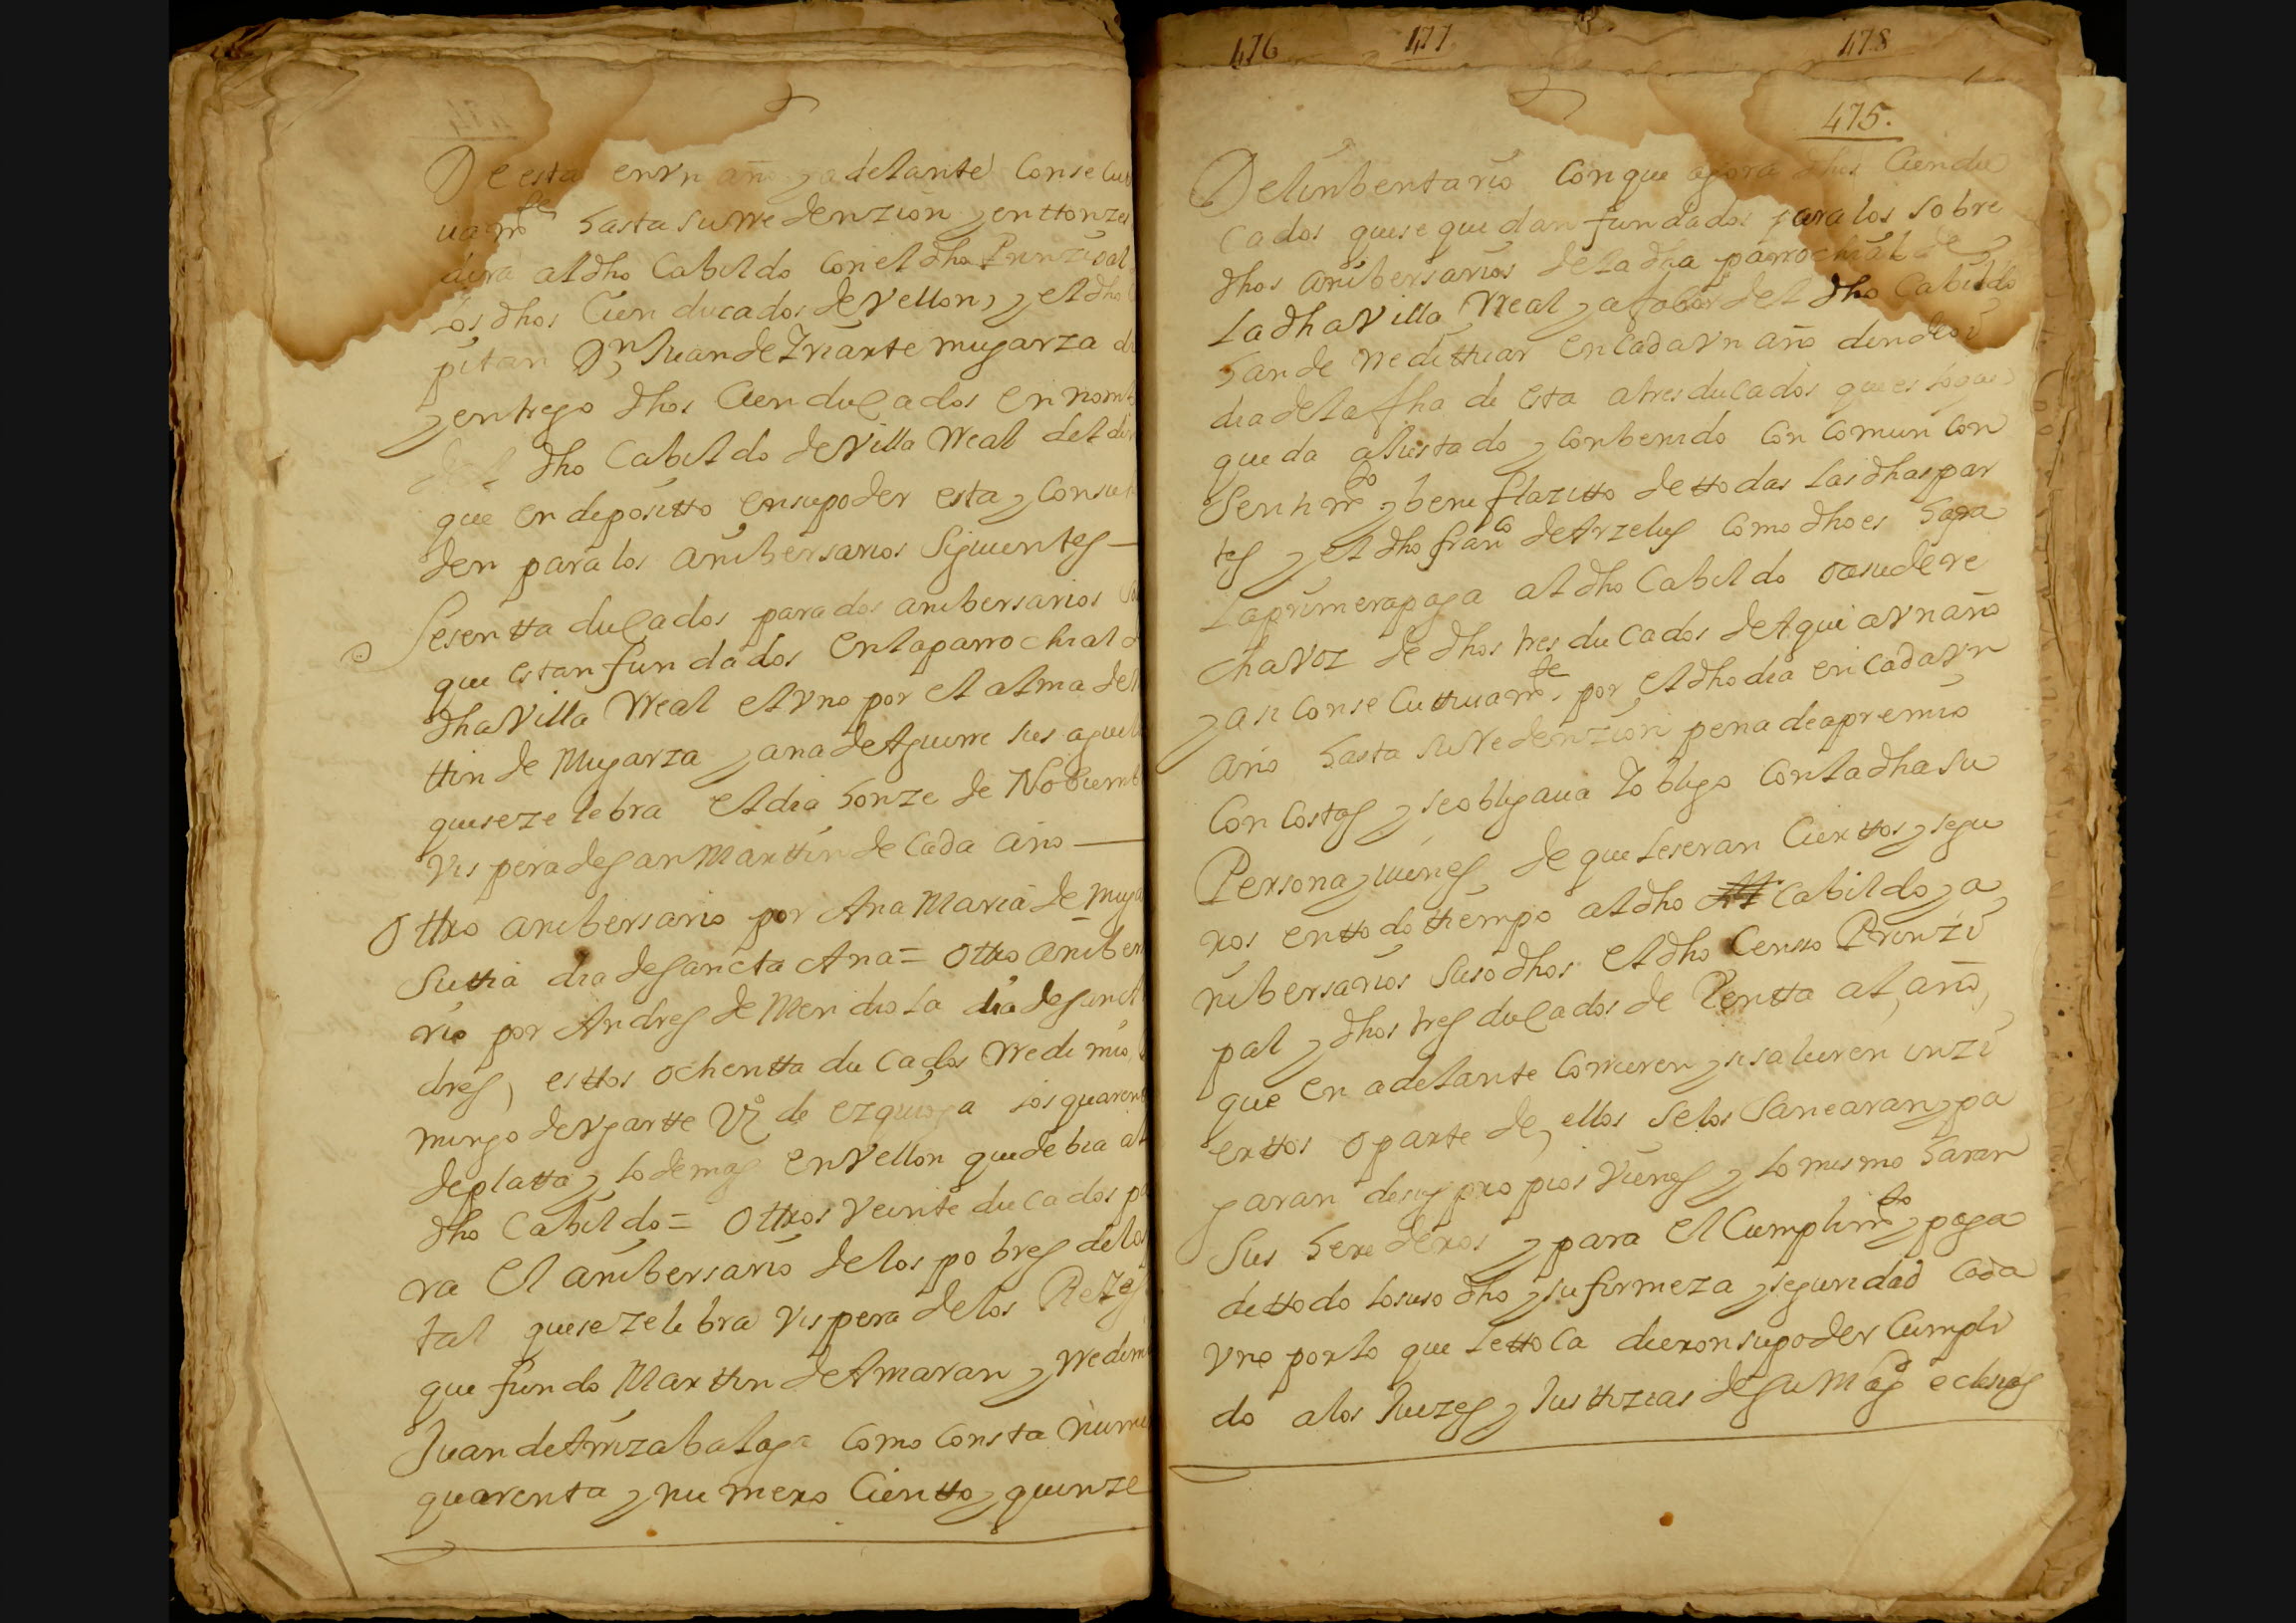 De esta en vn año y adelante Consecut
uamte hasta su rredenzion y enttonzes
dara al dho Cabildo con el dho Prinzipal
los dhos Cien ducados de vellon, y el dho
pitan Dn Juan de Yriarte mugarza
y entrego dhos Cien ducados en nomb
del dho Cabildo de Villa Rreal del di
que en deposítto en su poder esta y consu
den para los aníbersarios Siguientes —
Sesentta ducados para dos anibersarios
que estan fundados en la parrochial d
dha Villa Rreal el vno por el alma de
ttin de Mugarza y ana de Aguirre sus aguel
que se zelebra el dia honze de Nobiemb
vispera de san Marttin de Cada año —
Ottro anibersario por Ana Maria de muga
su ttia dia de sancta Ana = ottro aniber
rio por Andres de Mendiola dia de sanct
dres, esttos ochentta ducados rredimio
mingo de vgartte Vº de ezquioga los quaren
de platta y lo demas en vellon que debia al
dho Cabildo = Ottros veinte ducados p
ra el aníbersario de los pobres del os
tal que se zelebra vispera de los Reyes
que fundo Marttin de Amaran y rredimi
Juan de Arrizabalaga como consta nume
quarenta y numero Cientto y quinze
476 477 478
475.
Del ínbentario con que agora dhos Cien du
cados que se quedan fundados para los sobre
dhos aníbersarios de la dha parrochial de
la dha Villa Rreal y a fabor del dho Cabildo
han de rredittuar en cada vn año dende oí
dia de la fha de esta a tres ducados que es lo que
queda ajustado y conbenido con comun con
senttimto y beneplazitto de ttodas las dhas par
tes y el dho franco de Arzelus como dho es hara
la primera paga al dho Cabildo o a su dere
cha voz de dhos tres ducados de Aqui a vn año
y asi consecuttiuamte por el dho dia en cada vn
año hasta su redenzion pena de apremio
con costas y se obligaua y obligo con la dha su
Persona y uienes de que le seran Cierttos y segu
ros en ttodo ttiempo al dho Cabildo y a
níbersarios suso dhos el dho Censso Prinzi
pal y dhos tres ducados de Rentta al año,
que en adelante corrieren y si salieren inzi
erttos o parte de ellos se los sanearan y pa
garan de sus propios vienes y lo mismo haran
sus herederos y para el Cumplimto y paga
de ttodo lo suso dho y su firmeza y seguridad cada
vno por lo que le ttoca dieron su poder Cumpli
do a los Juezes y Justtizias de su Magd eclesias